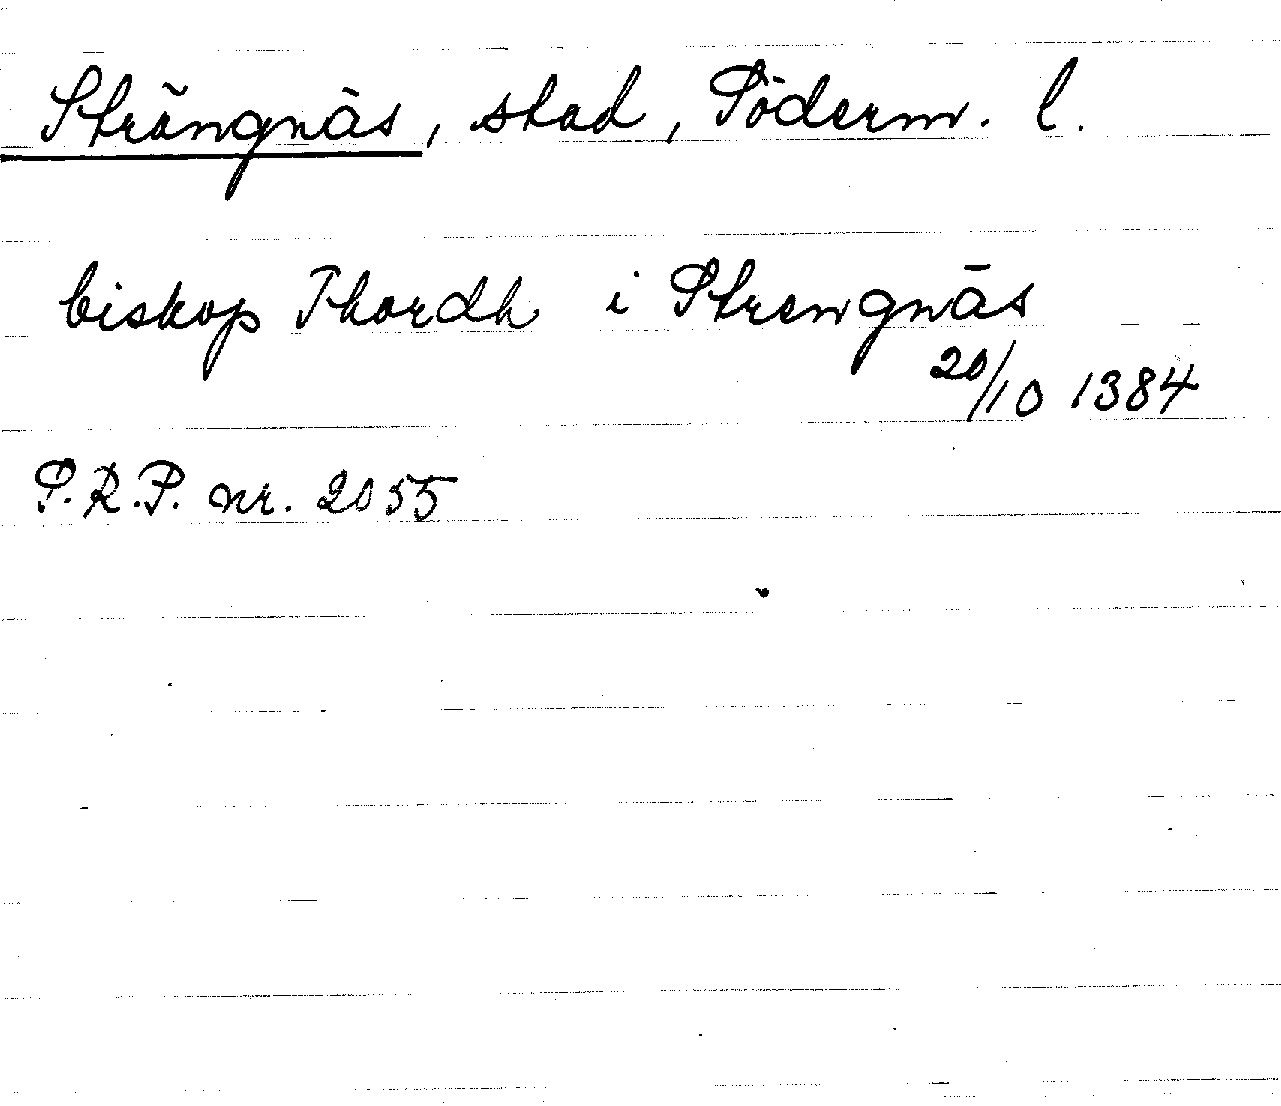 Strängnäs, stad, Söderm. l.
biskop Thordh i Strengnäs
20/10 1384
S.R.P. nr. 2055